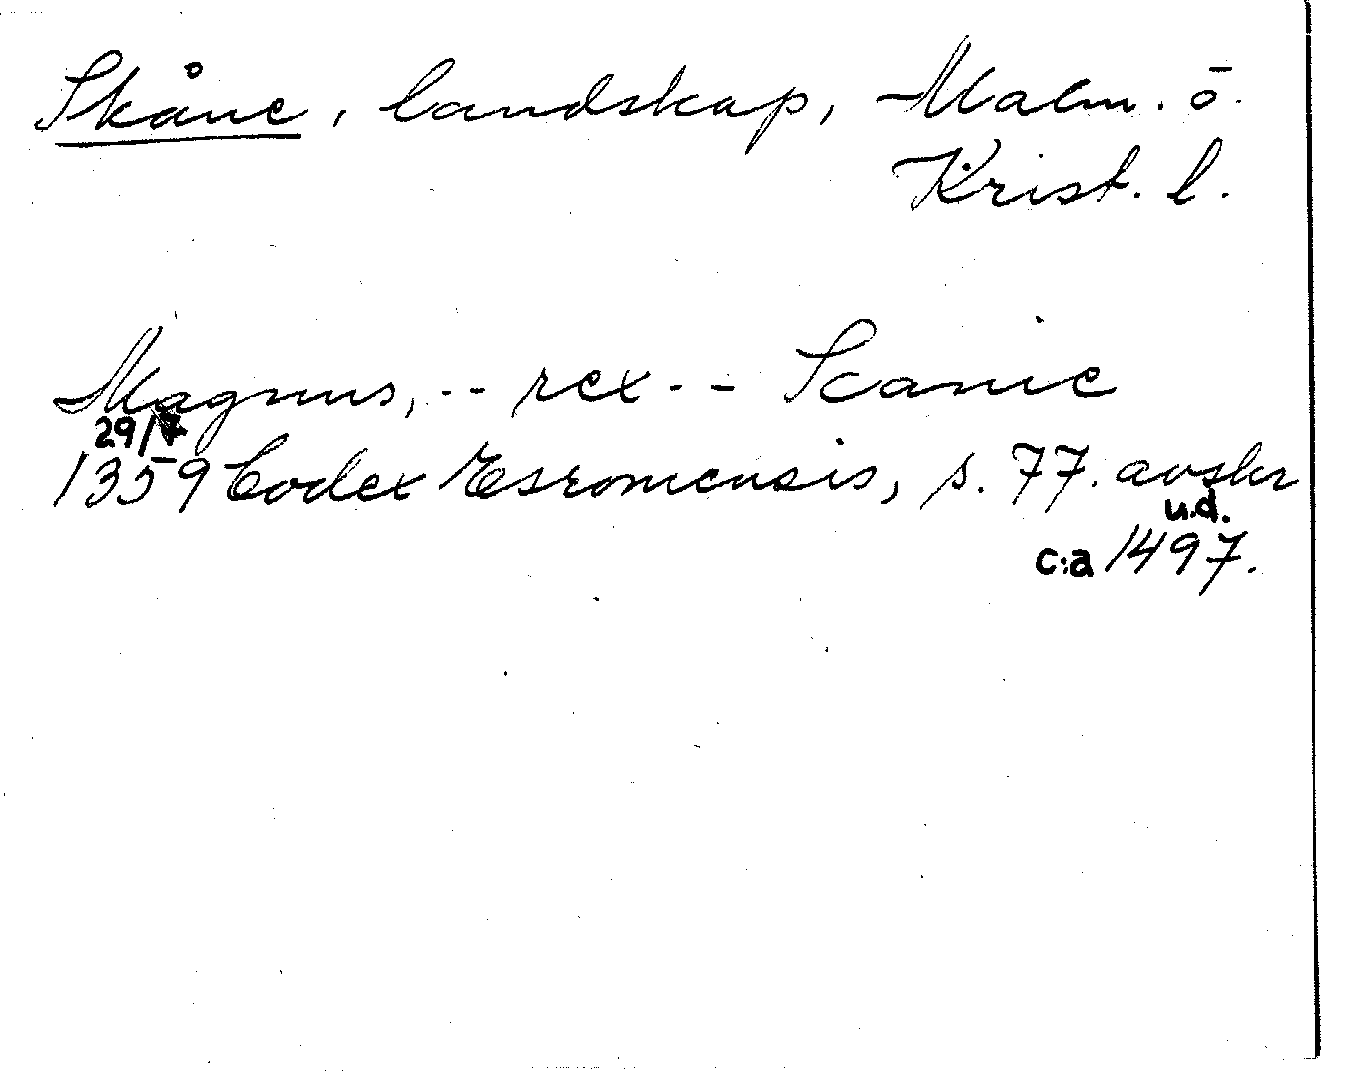 Skåne, landskap, Malm. ö.
Krist. l.
Magnus, -- rex -- Scanie
29/7
1359 Codex Esromensis, s. 77. avskr
u.d.
c:a 1497.